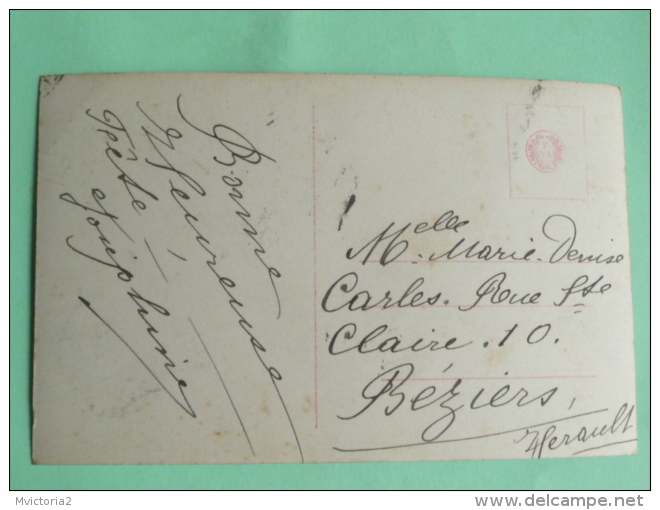 Bonne
Heureuse
Fête —
Joséphine
Melle Marie-Denise
Carles. Rue Ste
Claire. 10.
Béziers,
Herault
Mvictoria2
delcampe.net